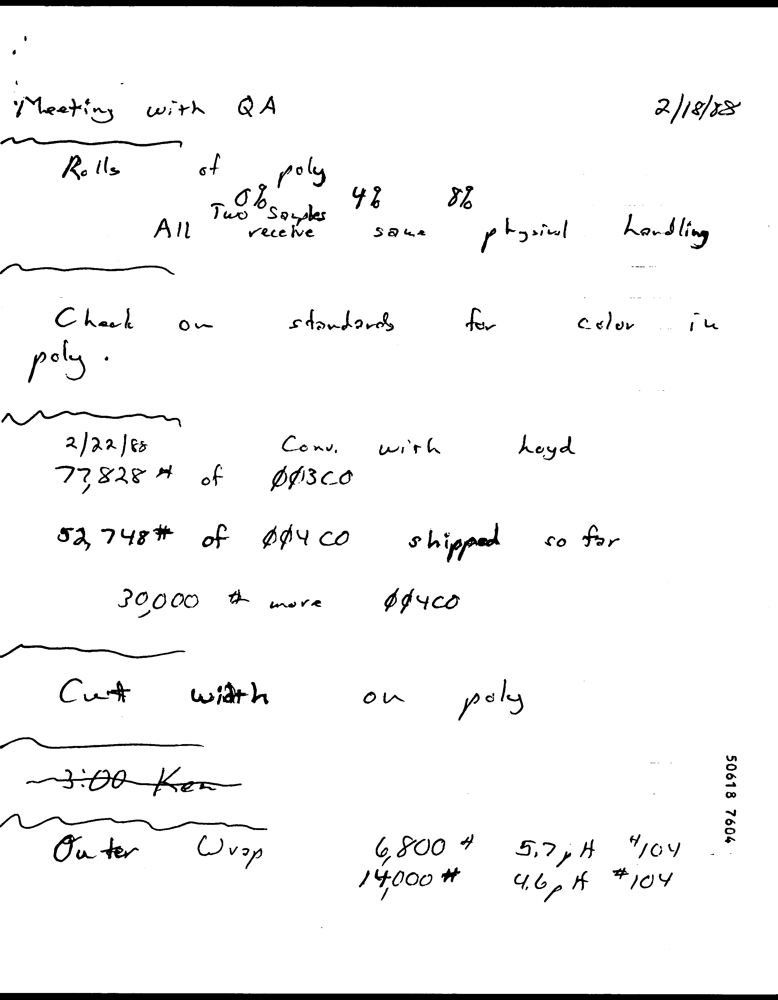 Meeting with QA 2/18/88
Rolls of poly
0% 4% 8%
Two Samples
All receive same physical handling
Check on standards for color in
poly.
2/22/88 Conv. with Loyd
77,828 # of ØØ3CO
52,748# of ØØ4CO shipped so far
30,000 # more ØØ4CO
Cut width on poly
3:00 Ken
Outer Wrap 6,800 # 5.7pH #104
14,000 # 4.6pH #104
50618 7604